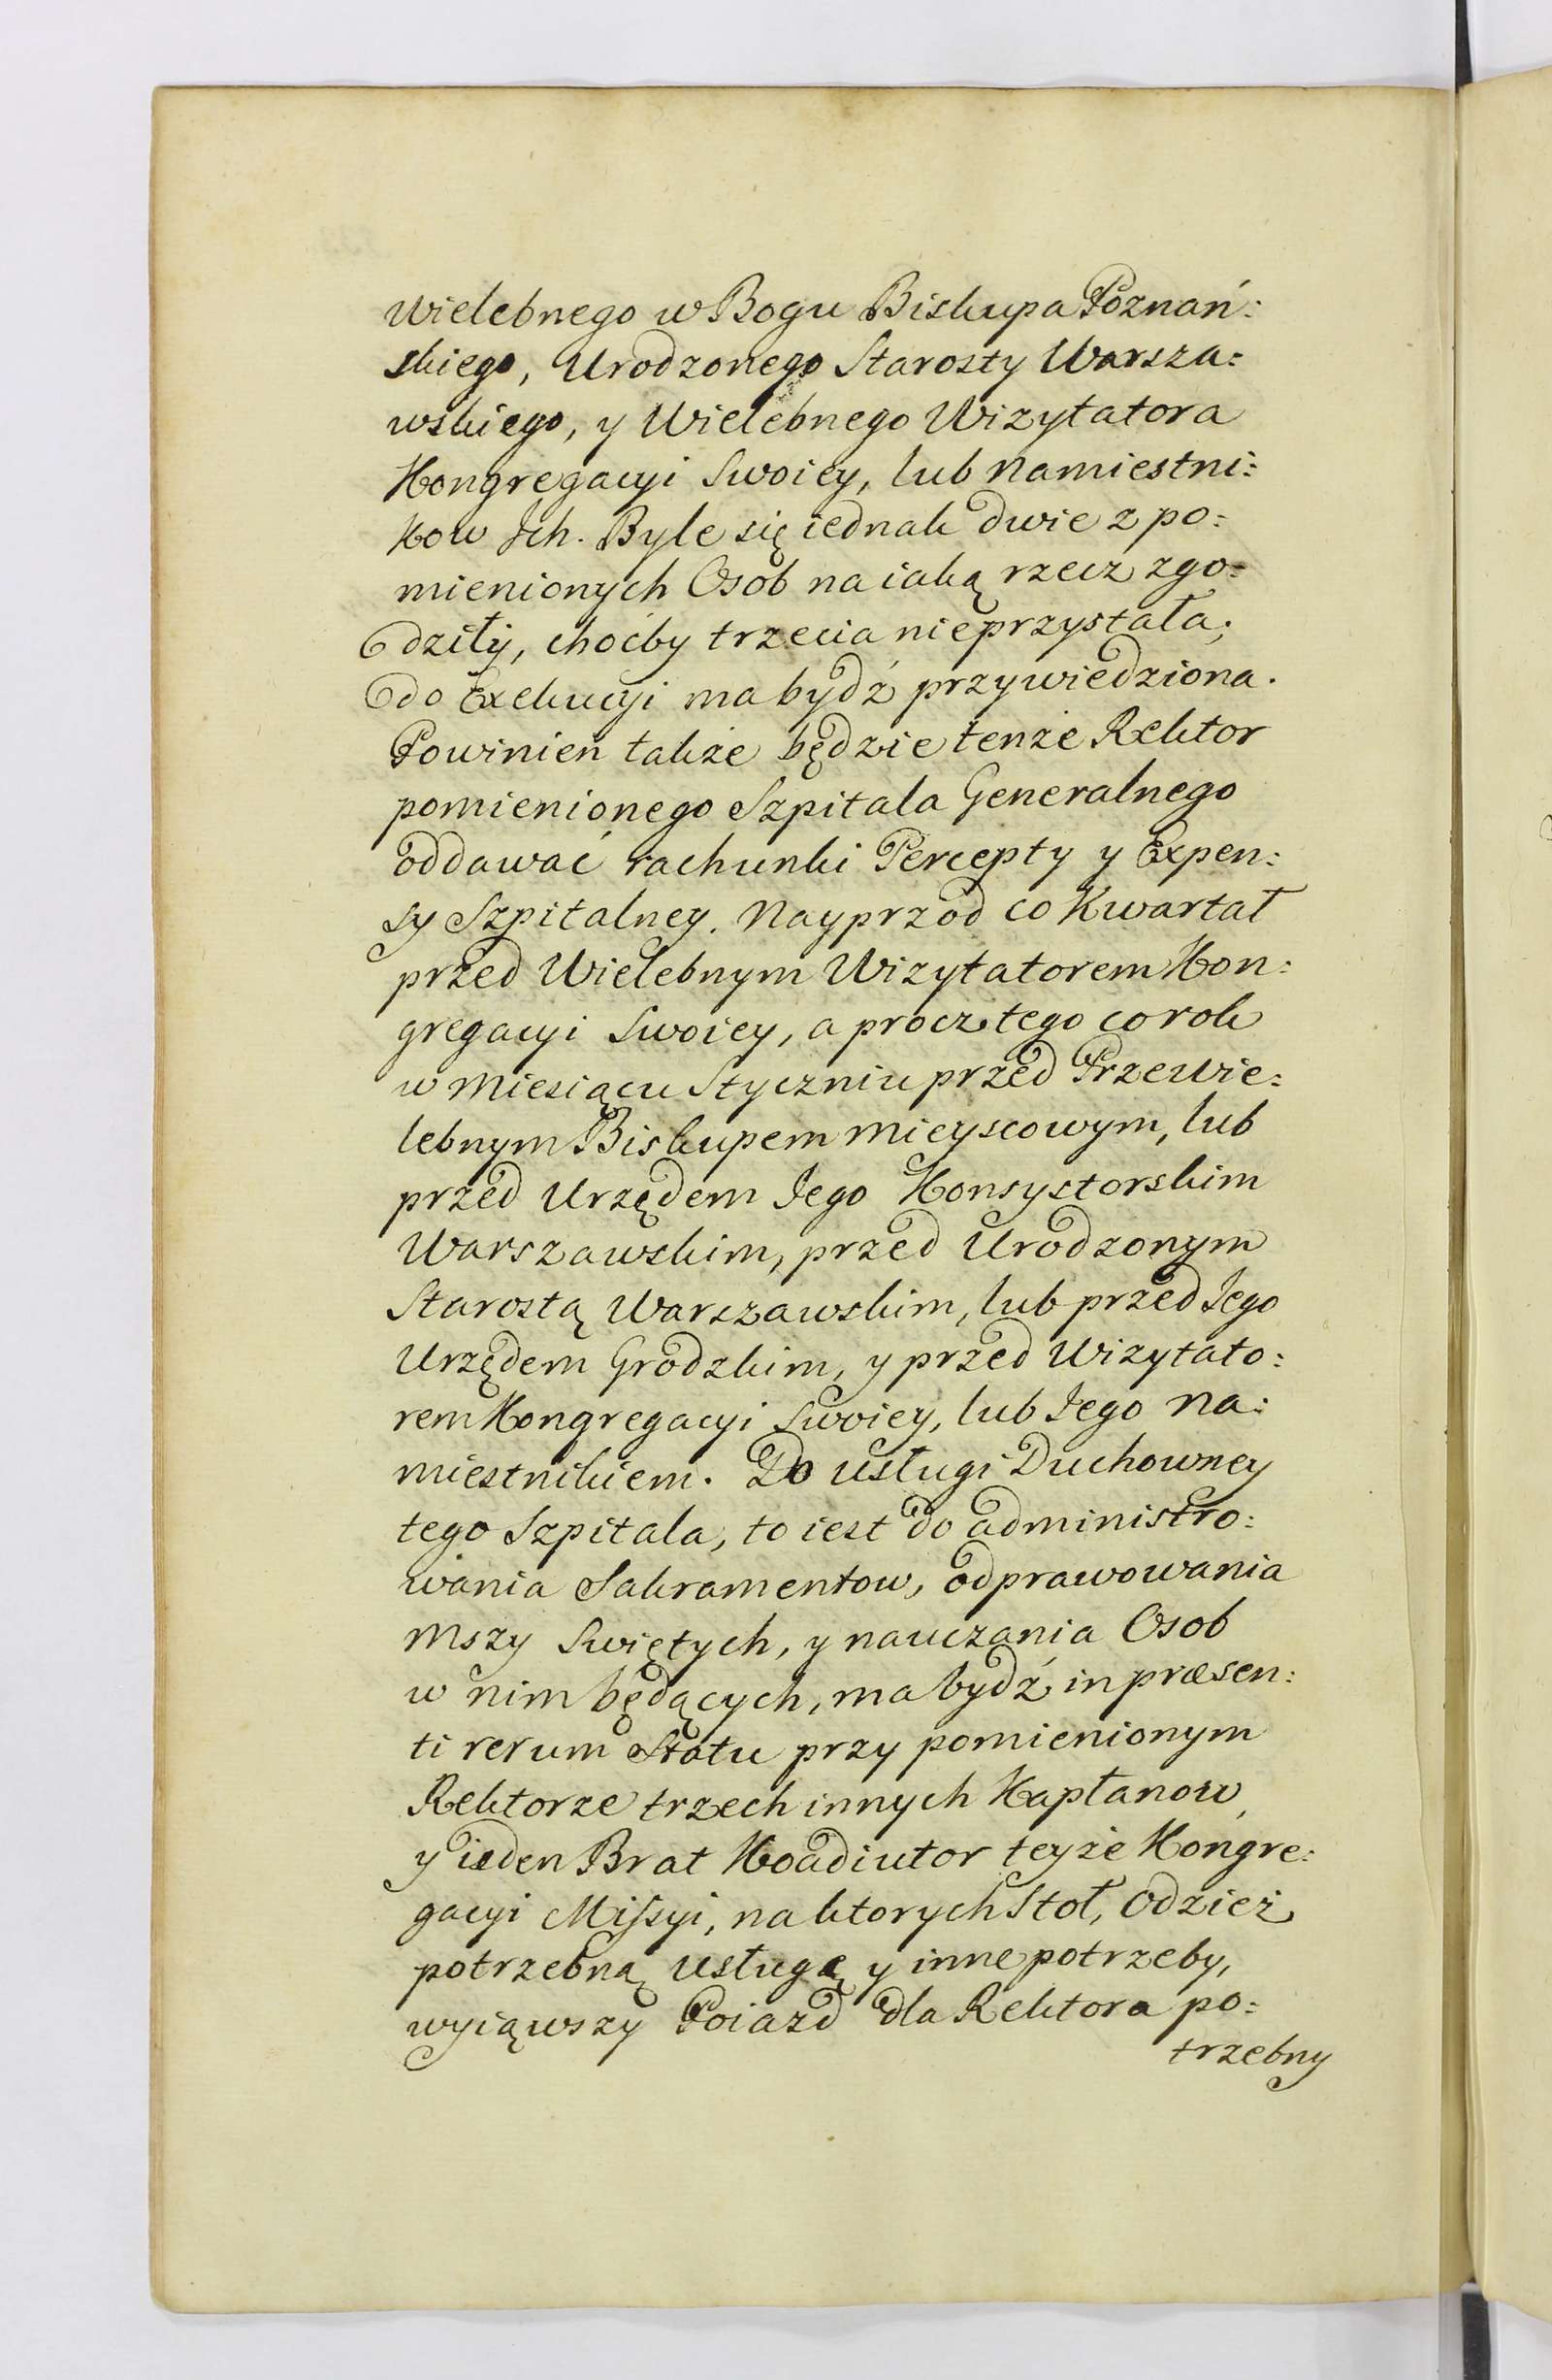 wielebnego w Bogu Biskupa Poznań:
skiego, Urodzonego Starosty Warsza:
wskiego, y Wielebnego Wizytatora
Kongregacyi Swoiey, lub Namiestni:
kow Ich. Byle się iednak dwie z po:
mienionych Osob na iaką rzecz zgo:
dziły, choćby trzecia nieprzystała;
do Exekucyi ma bydź przywiedziona.
Powinien także będzie tenże Rektor
pomienionego Szpitala Generalnego
oddawać rachunki Percepty y Expen:
sy Szpitalney. Nayprzod co Kwartał
przed Wielebnym Wizytatorem Kon:
gregacyi Swoiey, a procz tego co rok
w Miesiącu Styczniu przed Przewie:
lebnym Biskupem Mieyscowym, lub
przed Urzędem Jego Konsystorskim
Warszawskim, przed Urodzonym
Starostą Warszawskim, lub przed Jego
Urzędem Grodzkim, y przed Wizytato:
rem Kongregacyi Swoiey, lub Jego Na:
miestnikiem. Do usługi Duchowney
tego Szpitala, to iest do administro:
wania Sakramentow, odprawowania
Mszy Swiętych, y nauczania Osob
w nim będących, ma bydź in præsen:
ti rerum Statu przy pomienionym
Rektorze trzech innych Kapłanow,
y ieden Brat Koadiutor teyże Kongre:
gacyi Missyi, na ktorych Stoł, Odzież
potrzebną usługę y inne potrzeby,
wyiąwszy Poiazd dla Rektora po:
trzebny